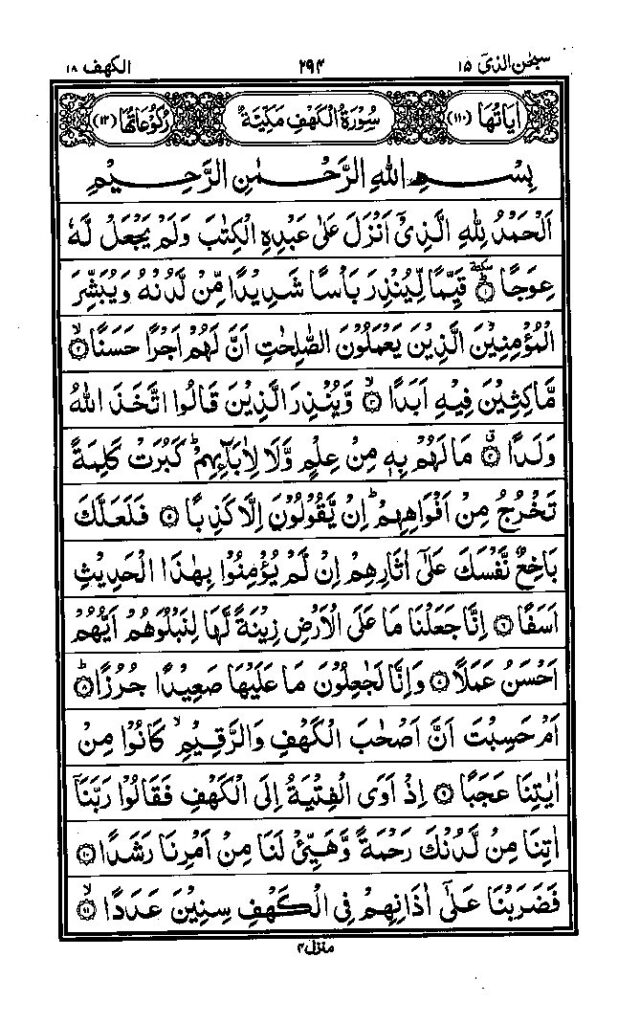 سبحٰن الذیٓ ۱۵ ۲۹۴ الکهف ۱۸
اٰیَاتُهَا (۱۱۰) سُوْرَةُ الْكَهْفِ مَكِّیَّةٌ رُكُوْعَاتُهَا (۱۲)
بِسْمِ اللّٰهِ الرَّحْمٰنِ الرَّحِیْمِ
اَلْحَمْدُ لِلّٰهِ الَّذِیْۤ اَنْزَلَ عَلٰى عَبْدِهِ الْكِتٰبَ وَلَمْ یَجْعَلْ لَّهٗ
عِوَجًا ۱ؕ سكتة قَیِّمًا لِّیُنْذِرَ بَاْسًا شَدِیْدًا مِّنْ لَّدُنْهُ وَیُبَشِّرَ
الْمُؤْمِنِیْنَ الَّذِیْنَ یَعْمَلُوْنَ الصّٰلِحٰتِ اَنَّ لَهُمْ اَجْرًا حَسَنًا ۲ۙ
مَّاكِثِیْنَ فِیْهِ اَبَدًا ۳ۙ وَّیُنْذِرَ الَّذِیْنَ قَالُوا اتَّخَذَ اللّٰهُ
وَلَدًا ۴ۗ مَا لَهُمْ بِهٖ مِنْ عِلْمٍ وَّلَا لِاٰبَآىِٕهِمْ ؕ كَبُرَتْ كَلِمَةً
تَخْرُجُ مِنْ اَفْوَاهِهِمْ ؕ اِنْ یَّقُوْلُوْنَ اِلَّا كَذِبًا ۵ فَلَعَلَّكَ
بَاخِعٌ نَّفْسَكَ عَلٰۤى اٰثَارِهِمْ اِنْ لَّمْ یُؤْمِنُوْا بِهٰذَا الْحَدِیْثِ
اَسَفًا ۶ اِنَّا جَعَلْنَا مَا عَلَى الْاَرْضِ زِیْنَةً لَّهَا لِنَبْلُوَهُمْ اَیُّهُمْ
اَحْسَنُ عَمَلًا ۷ وَاِنَّا لَجٰعِلُوْنَ مَا عَلَیْهَا صَعِیْدًا جُرُزًا ۸ؕ
اَمْ حَسِبْتَ اَنَّ اَصْحٰبَ الْكَهْفِ وَالرَّقِیْمِ ۙ كَانُوْا مِنْ
اٰیٰتِنَا عَجَبًا ۹ اِذْ اَوَى الْفِتْیَةُ اِلَى الْكَهْفِ فَقَالُوْا رَبَّنَاۤ
اٰتِنَا مِنْ لَّدُنْكَ رَحْمَةً وَّهَیِّئْ لَنَا مِنْ اَمْرِنَا رَشَدًا ۱۰
فَضَرَبْنَا عَلٰۤى اٰذَانِهِمْ فِی الْكَهْفِ سِنِیْنَ عَدَدًا ۱۱ۙ
منزل ۴